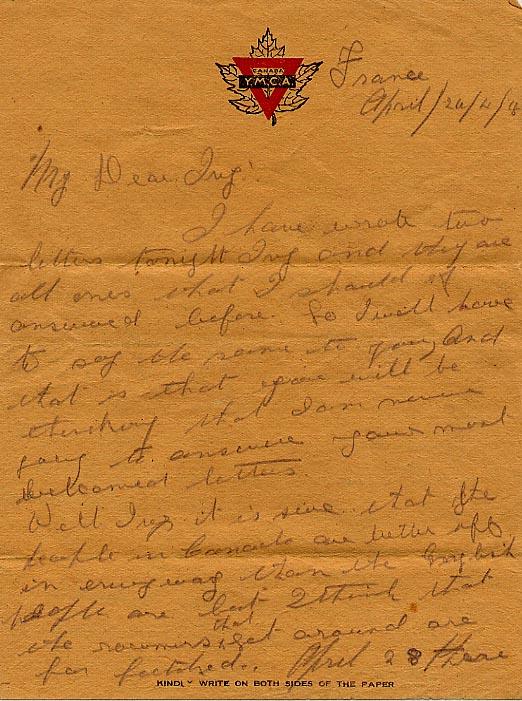 CANADA
Y.M.C.A.
France
April/24/4/8
My Dear Ing.
I have wrote two
letters tonight Ing and they are
all ones that I should of
answered before. So I will have
to say the same to you, and
that is that you will be
thinking that I am never
going to answer your most
welcomed letters.
Well Ing it is sure that the
people in Canada are better off
in every way than the English
people are but I think that
the roumers that get around are
far fetched. April 28 there
KINDLY WRITE ON BOTH SIDES OF THE PAPER